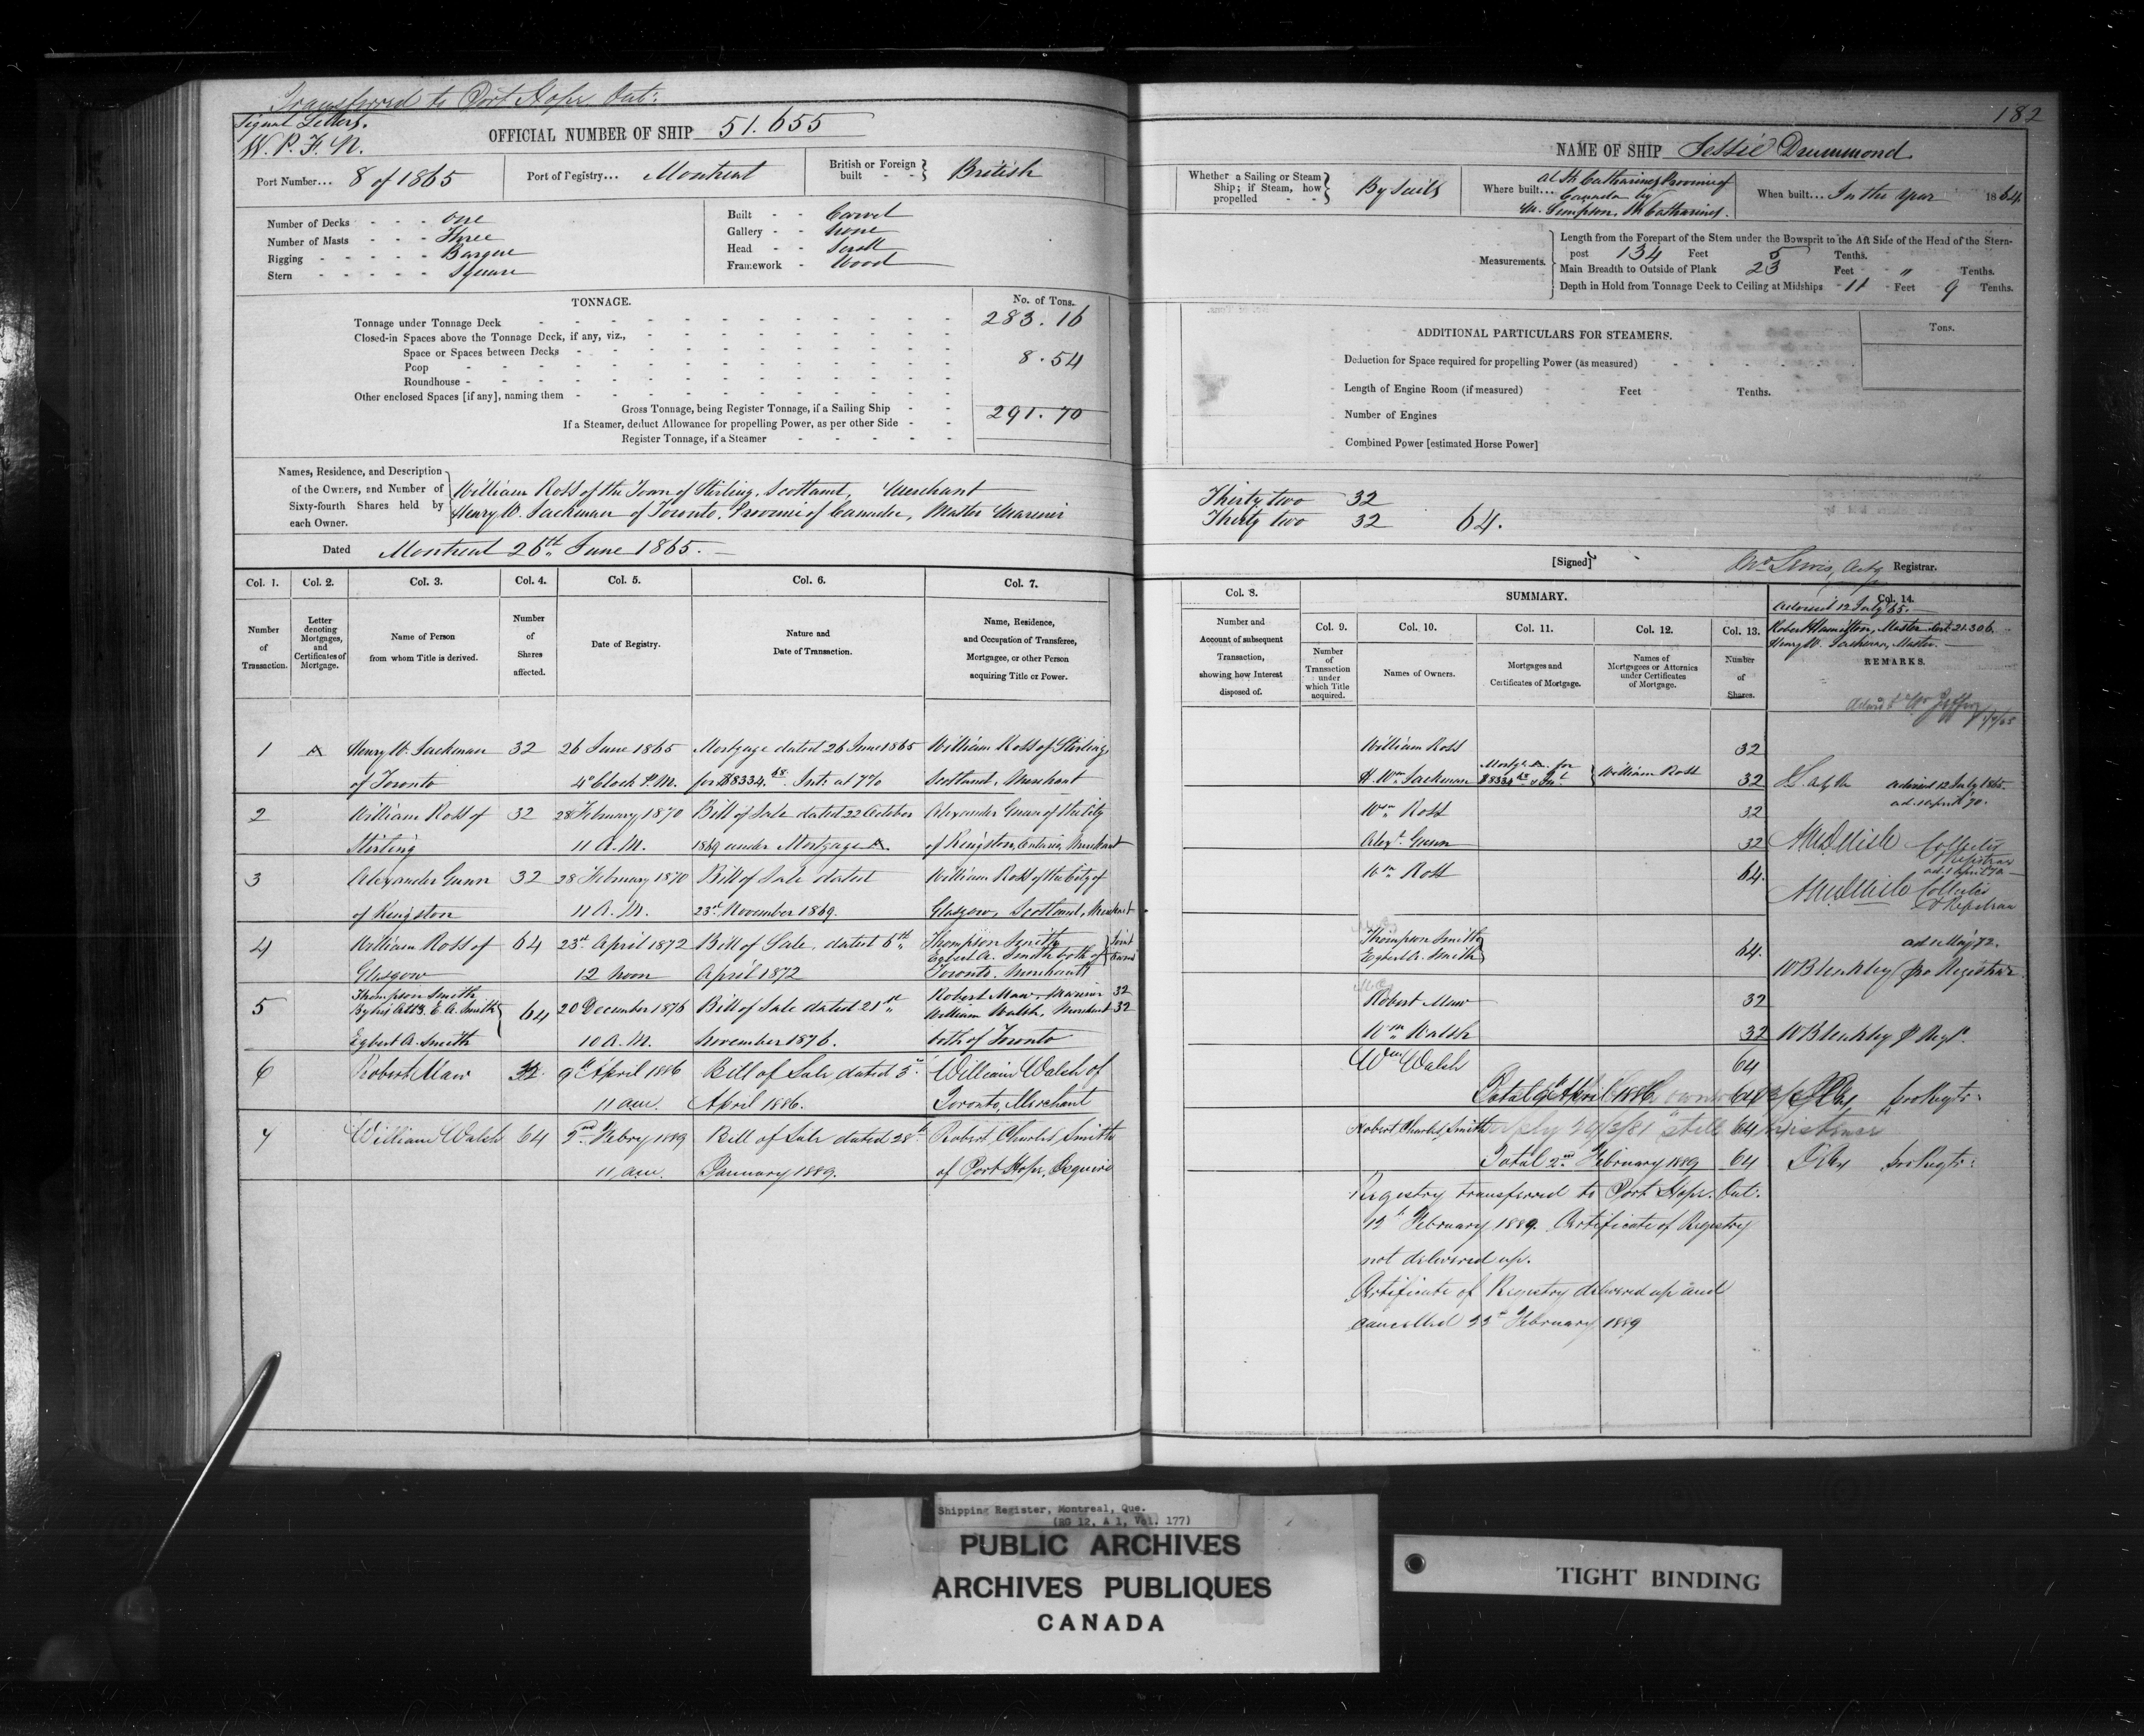 Transferred to Port Hope Ont:
Signal Letters.
W. P. F. N.
OFFICIAL NUMBER OF SHIP 51.655
Port Number... 8 of 1865
Port of Registry... Montreal
British or Foreign built - - } British
Number of Decks - - - One
Number of Masts - - - Three
Rigging - - - - - Barque
Stern - - - - - Square
Built - - Carvel
Gallery - - None
Head - - Scroll
Framework - Wood
TONNAGE.
No. of Tons.
Tonnage under Tonnage Deck 283.16
Closed-in Spaces above the Tonnage Deck, if any, viz.,
Space or Spaces between Decks 8.54
Poop
Roundhouse
Other enclosed Spaces [if any], naming them
Gross Tonnage, being Register Tonnage, if a Sailing Ship 291.70
If a Steamer, deduct Allowance for propelling Power, as per other Side
Register Tonnage, if a Steamer
Names, Residence, and Description
of the Owners, and Number of
Sixty-fourth Shares held by
each Owner.
William Ross of the Town of Stirling, Scotland, Merchant
Henry W. Jackman of Toronto, Province of Canada, Master Mariner
Dated Montreal 26th June 1865.
Col. 1. Col. 2. Col. 3. Col. 4. Col. 5. Col. 6. Col. 7.
Number of Transaction.
Letter denoting Mortgages, and Certificates of Mortgage.
Name of Person from whom Title is derived.
Number of Shares affected.
Date of Registry.
Nature and Date of Transaction.
Name, Residence, and Occupation of Transferee, Mortgagee, or other Person acquiring Title or Power.
1 A Henry W. Jackman 32 26 June 1865 Mortgage dated 26 June 1865 William Ross of Stirling
of Toronto 4 o'Clock P.M. for $8334.68 Int. at 7% Scotland, Merchant
2 William Ross of 32 28 February 1870 Bill of Sale dated 22 October Alexander Gunn of the City
Stirling 11 A.M. 1869 under Mortgage A. of Kingston, Ontario, Merchant
3 Alexander Gunn 32 28 February 1870 Bill of Sale dated William Ross of the City of
of Kingston 11 A.M. 23rd November 1869. Glasgow, Scotland, Merchant
4 William Ross of 64 23rd April 1872 Bill of Sale, dated 6th Thompson Smith
Egbert A. Smith both of } Joint Owners
Glasgow 12 noon April 1872 Toronto, Merchants
5 Thompson Smith
By his Atty. E. A. Smith 64 20 December 1876 Bill of Sale dated 21st Robert Maw, Mariner 32
William Walsh, Merchant 32
Egbert A. Smith 10 A.M. November 1876. both of Toronto
6 Robert Maw 32 9th April 1886 Bill of Sale dated 3rd William Walsh of
11 am. April 1886. Toronto, Merchant
7 William Walsh 64 2nd Febry 1889 Bill of Sale dated 28th Robert Charles Smith
11 am. January 1889. of Port Hope, Esquire
182
NAME OF SHIP Jessie Drummond
Whether a Sailing or Steam Ship; if Steam, how propelled - - } By Sails
Where built... At St. Catharines Province of
Canada by
M. Simpson, St. Catharines.
When built... In the year 1864
Measurements.
Length from the Forepart of the Stem under the Bowsprit to the Aft Side of the Head of the Stern-
post 134 Feet 5 Tenths.
Main Breadth to Outside of Plank 23 Feet " Tenths.
Depth in Hold from Tonnage Deck to Ceiling at Midships 11 Feet 9 Tenths.
ADDITIONAL PARTICULARS FOR STEAMERS.
Tons.
Deduction for Space required for propelling Power (as measured)
Length of Engine Room (if measured) Feet Tenths.
Number of Engines
Combined Power [estimated Horse Power]
Thirty two 32
Thirty two 32 64.
[Signed] Lewis, Actg Registrar.
Col. 8.
Number and Account of subsequent Transaction, showing how Interest disposed of.
SUMMARY.
Col. 9. Col. 10. Col. 11. Col. 12. Col. 13. Col. 14.
Number of Transaction under which Title acquired.
Names of Owners.
Mortgages and Certificates of Mortgage.
Names of Mortgagees or Attornies under Certificates of Mortgage.
Number of Shares.
Advised 12 July 65.
Robert Hamilton, Master Cert 21.306.
Henry W. Jackman, Master.
REMARKS.
William Ross 32
H. Wm. Jackman Mortge A. for $8334.68 & Int. { William Ross 32 Advised 12 July 1865.
Wm Ross 32 ad. 1 April 70.
Alexr. Gunn 32 Collector & Registrar
Wm Ross 64. ad. 1 April 70
Collector & Registrar
Thompson Smith
Egbert A. Smith } 64. ad 1 May 72.
W B Leahley pro Registrar
Robert Maw 32
Wm Walsh 32 W B Leahley p Regr.
Wm Walsh 64
Total 9th April 1886 64 pro Regtr:
Robert Charles Smith 64
Total 2nd February 1889 64 pro Regtr:
Registry transferred to Port Hope. Ont.
15th February 1889. Certificate of Registry
not delivered up.
Certificate of Registry delivered up and
cancelled 23rd February 1889
Shipping Register, Montreal, Que.
(RG 12, A 1, Vol. 177)
PUBLIC ARCHIVES
ARCHIVES PUBLIQUES
CANADA
TIGHT BINDING